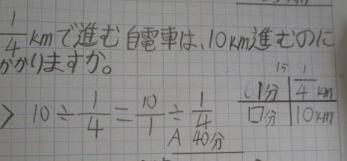 1/4 kmで進む自電車は、10km進むのに
かかりますか。
10 ÷ 1/4 = 10/1 ÷ 1/4
A 40分
15
1分 | 1/4 km
□分 | 10km